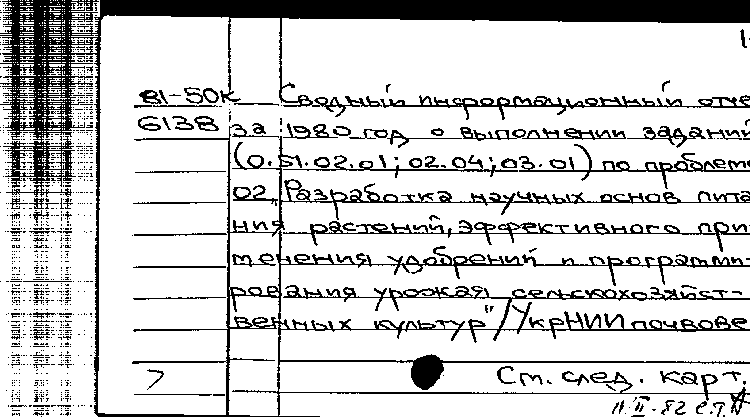 81-50к Сводный информационный отче
6138 за 1980 год о выполнении заданий
(0.51.02.01; 02.04; 03.01) по проблеме
02 „Разработка научных основ пита-
ния растений, эффективного при-
менения удобрений и программи-
рования урожая сельскохозяйст-
венных культур"/УкрНИИ почвове
7 См. след. карт.
11.II.82 с.т.